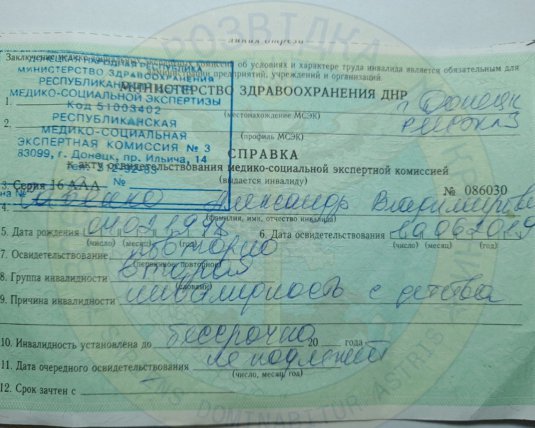 линия отреза
Заключение об условиях и характере труда инвалида является обязательным для
предприятий, учреждений и организаций.
ДОНЕЦКАЯ НАРОДНАЯ РЕСПУБЛИКА
МИНИСТЕРСТВО ЗДРАВООХРАНЕНИЯ
РЕСПУБЛИКАНСКИЙ
МЕДИКО-СОЦИАЛЬНОЙ ЭКСПЕРТИЗЫ
Код 51003402
РЕСПУБЛИКАНСКАЯ
МЕДИКО-СОЦИАЛЬНАЯ
ЭКСПЕРТНАЯ КОМИССИЯ № 3
83099, г. Донецк, пр. Ильича, 14
МИНИСТЕРСТВО ЗДРАВООХРАНЕНИЯ ДНР
1. г. Донецк
(местонахождение МСЭК)
2.
(профиль МСЭК)
СПРАВКА
к акту освидетельствования медико-социальной экспертной комиссией
(выдается инвалиду)
3. Серия 16 ААА № № 086030
4. Александр Владимирови
(фамилия, имя, отчество инвалида)
5. Дата рождения 6. Дата освидетельствования
(число) (месяц) (год) (число) (месяц) (год)
7. Освидетельствование повторно
(первичное, повторное)
8. Группа инвалидности вторая
(словами)
9. Причина инвалидности инвалидность с детства
10. Инвалидность установлена до бессрочно 20 года
11. Дата очередного освидетельствования не подлежит
(число, месяц, год)
12. Срок зачтен с
РОЗВІДКА
DOMINABITUR ASTRIS